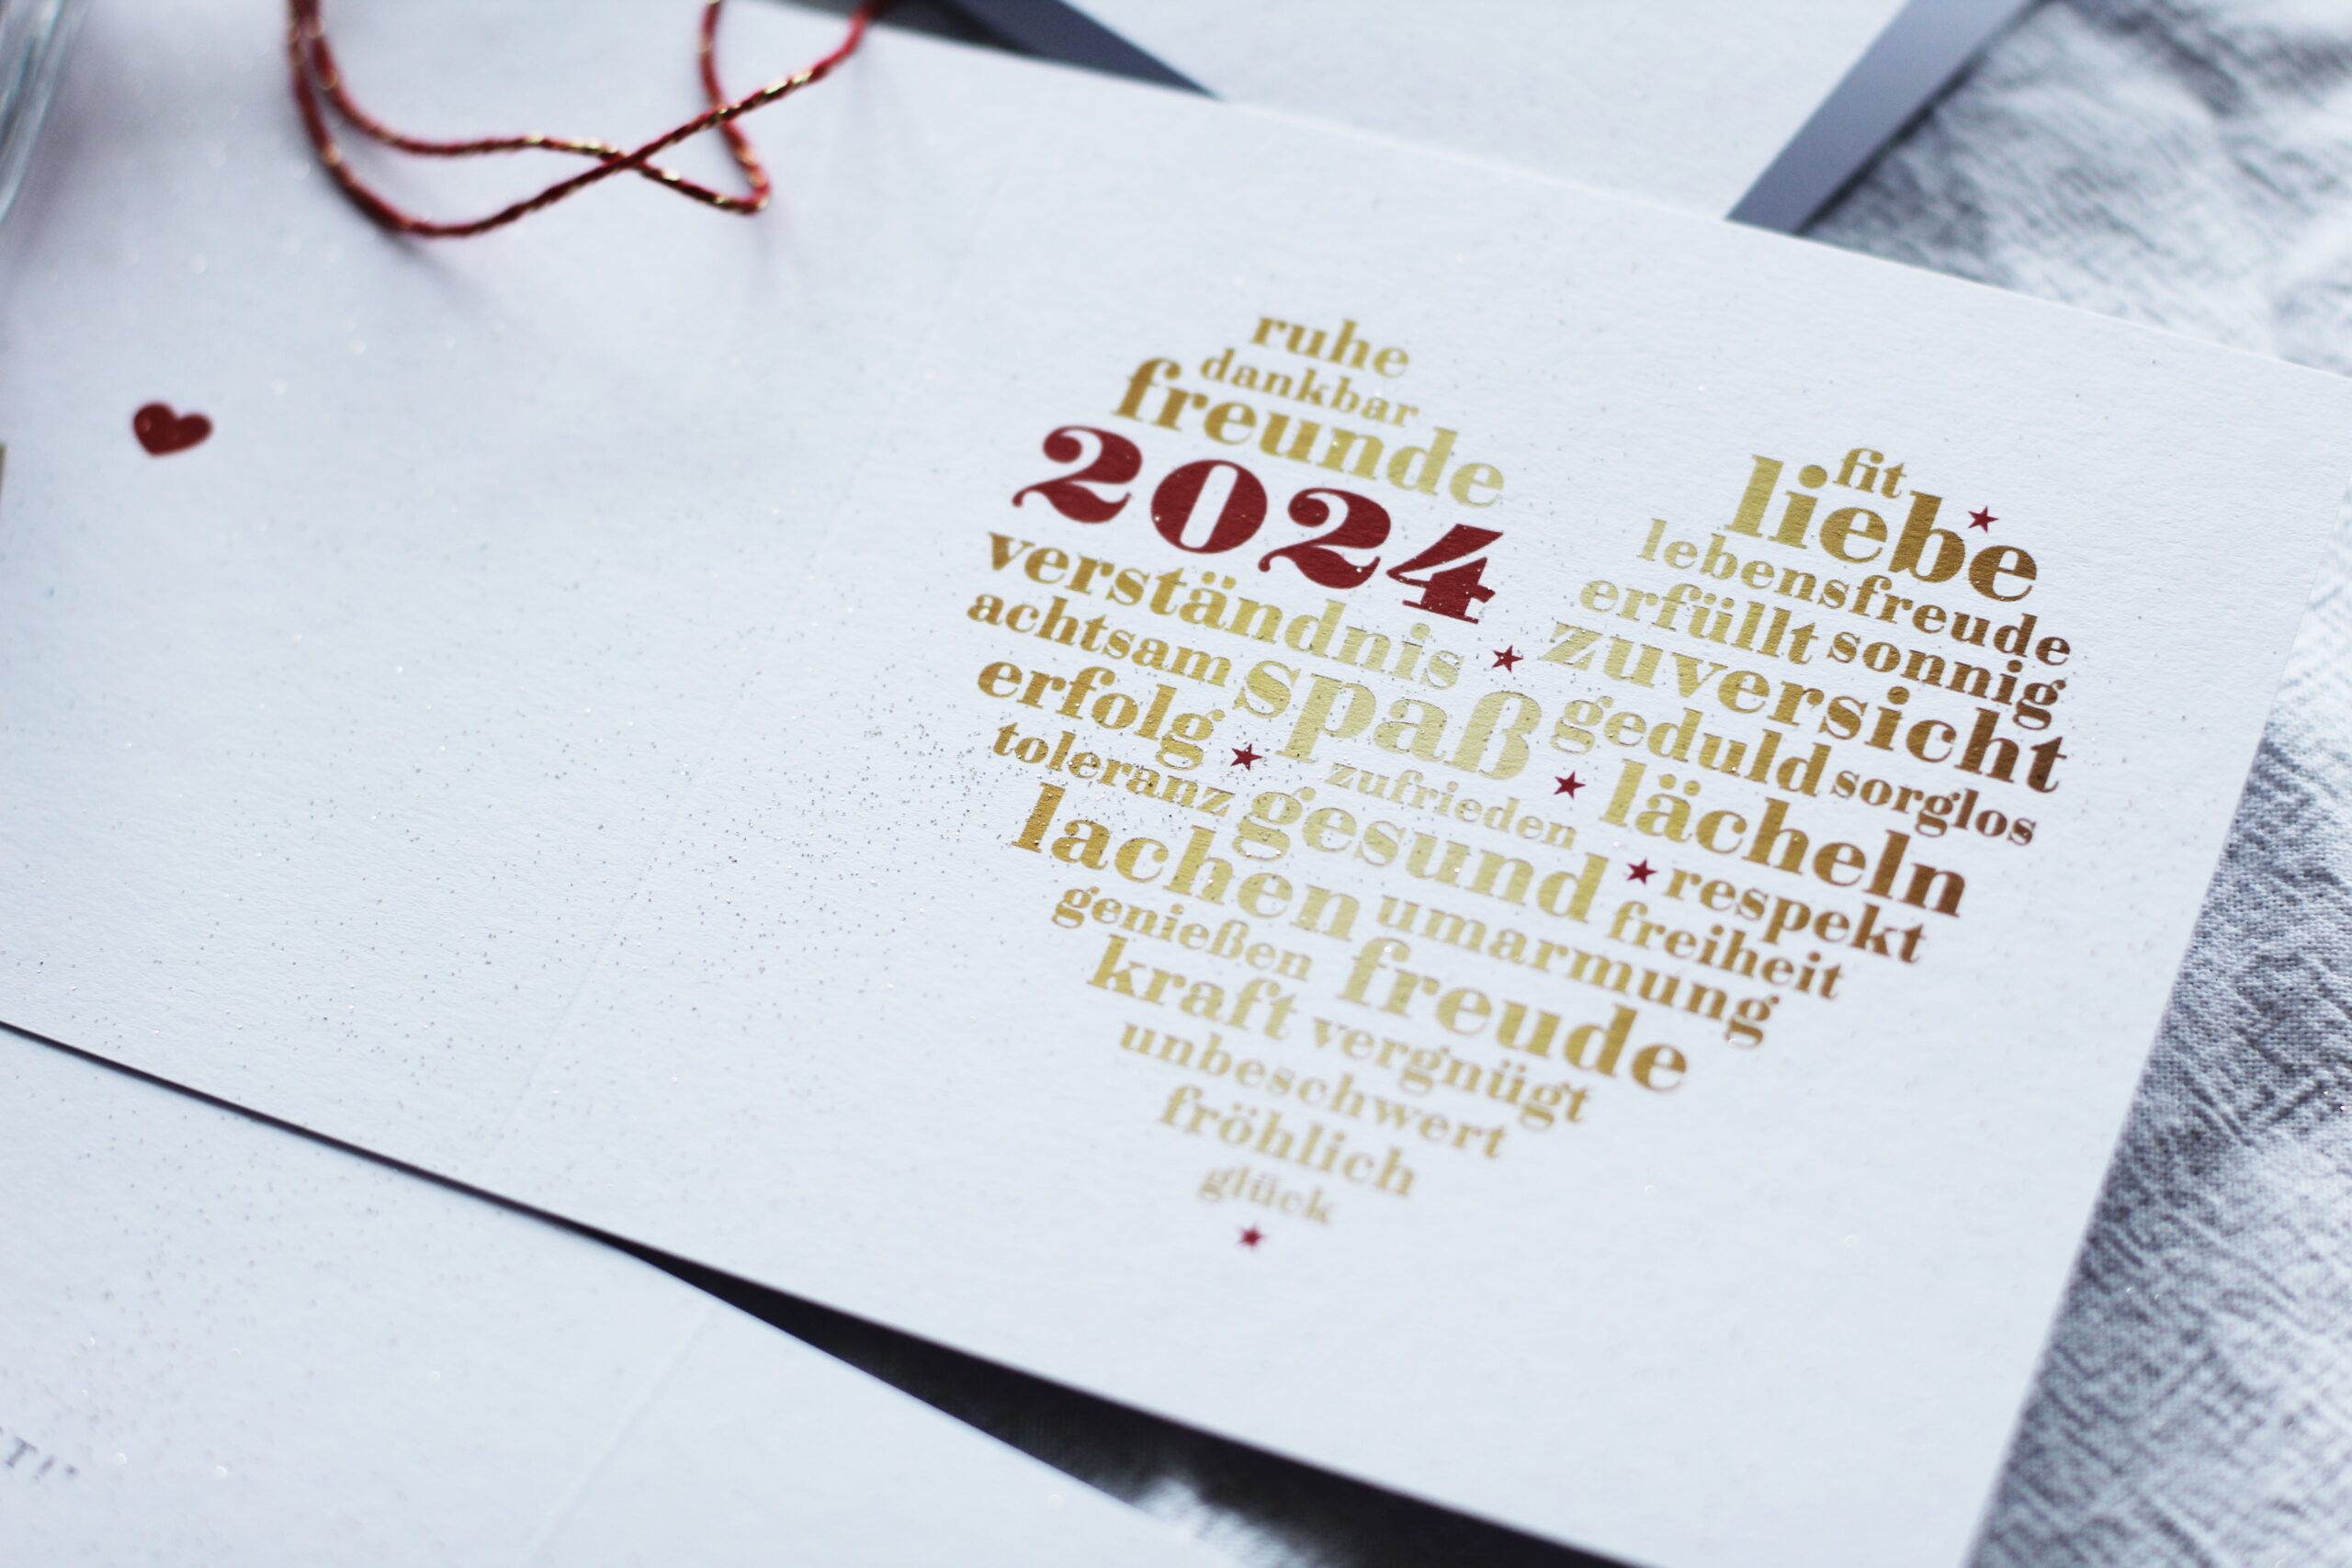 ruhe
dankbar fit
freunde liebe
lebensfreude
2024 erfüllt sonnig
verständnis zuversicht
achtsam spaß geduld sorglos
erfolg lächeln
toleranz zufrieden respekt
lachen gesund freiheit
umarmung
genießen freude
kraft vergnügt
unbeschwert
fröhlich
glück